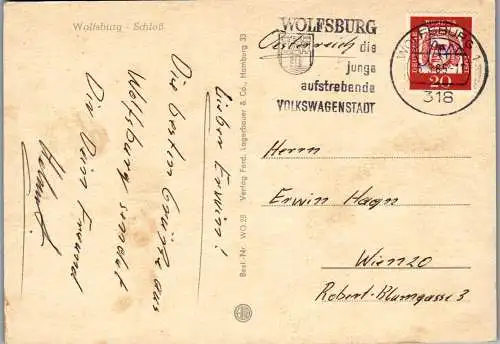 Wolfsburg - Schloß
Lieber Erwin!
Die besten Grüße aus
Wolfsburg sendet
Dir Dein Freund
Helmut
Best.-Nr. WO 28 Verlag Ferd. Lagerbauer & Co., Hamburg 33
WOLFSBURG
die
junge
aufstrebende
VOLKSWAGENSTADT
Österreich
WOLFSBURG 1
318
DEUTSCHE BUNDESPOST
20
Herrn
Erwin Hagn
Wien 20
Robert-Blumgasse 3